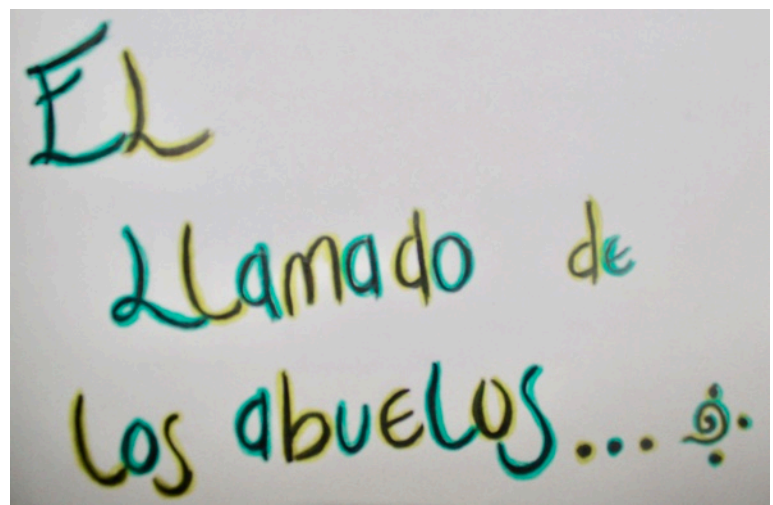 El
Llamado de
los abuelos...